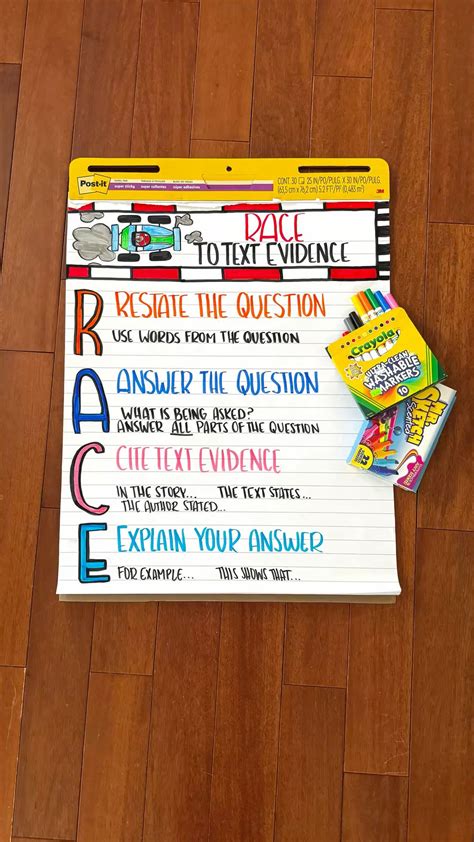 Post-it
super sticky
CONT. 30
25 IN/PO/PULG. X 30 IN/PO/PULG.
(63,5 cm x 76,2 cm) 5.2 FT²/PI² (0,483 m²)
3M
RACE
TO TEXT EVIDENCE
R RESTATE THE QUESTION
USE WORDS FROM THE QUESTION
A ANSWER THE QUESTION
WHAT IS BEING ASKED?
ANSWER ALL PARTS OF THE QUESTION
C CITE TEXT EVIDENCE
IN THE STORY... THE TEXT STATES...
THE AUTHOR STATED...
E EXPLAIN YOUR ANSWER
FOR EXAMPLE... THIS SHOWS THAT...
Crayola
ULTRA-CLEAN
WASHABLE
MARKERS
10
Mr. SKETCH
Scented
22